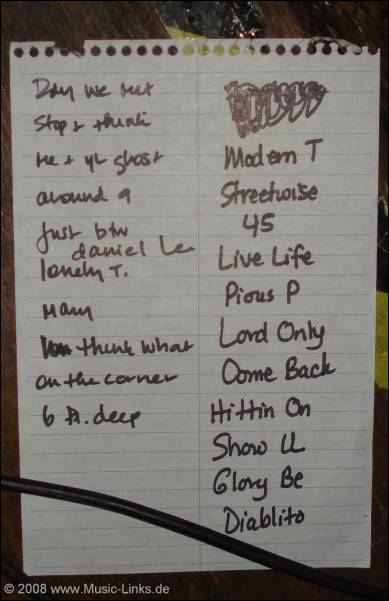 Day we met
Stop & think
me & yr ghost
around 9
just btw
daniel Le
lonely T.
Mary
think what
on the corner
6 ft. deep
Modern T
Streetwise
45
Live Life
Pious P
Lord Only
Come Back
Hittin On
Show LL
Glory Be
Diablito
© 2008 www.Music-Links.de